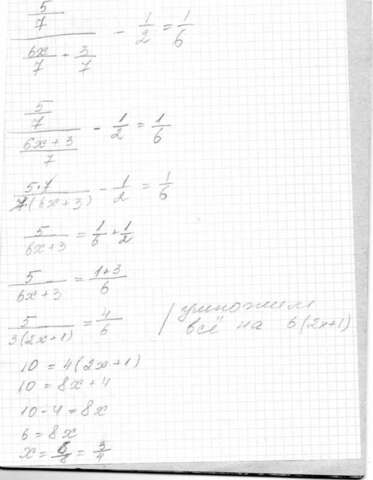 5/7 / (6x/7 - 3/7) - 1/2 = 1/6
5/7 / ((6x+3)/7) - 1/2 = 1/6
5·7 / 7(6x+3) - 1/2 = 1/6
5/(6x+3) = 1/6 + 1/2
5/(6x+3) = (1+3)/6
5/3(2x+1) = 4/6 / умножаем
всё на 6(2x+1)
10 = 4(2x+1)
10 = 8x+4
10-4 = 8x
6 = 8x
x = 6/8 = 3/4